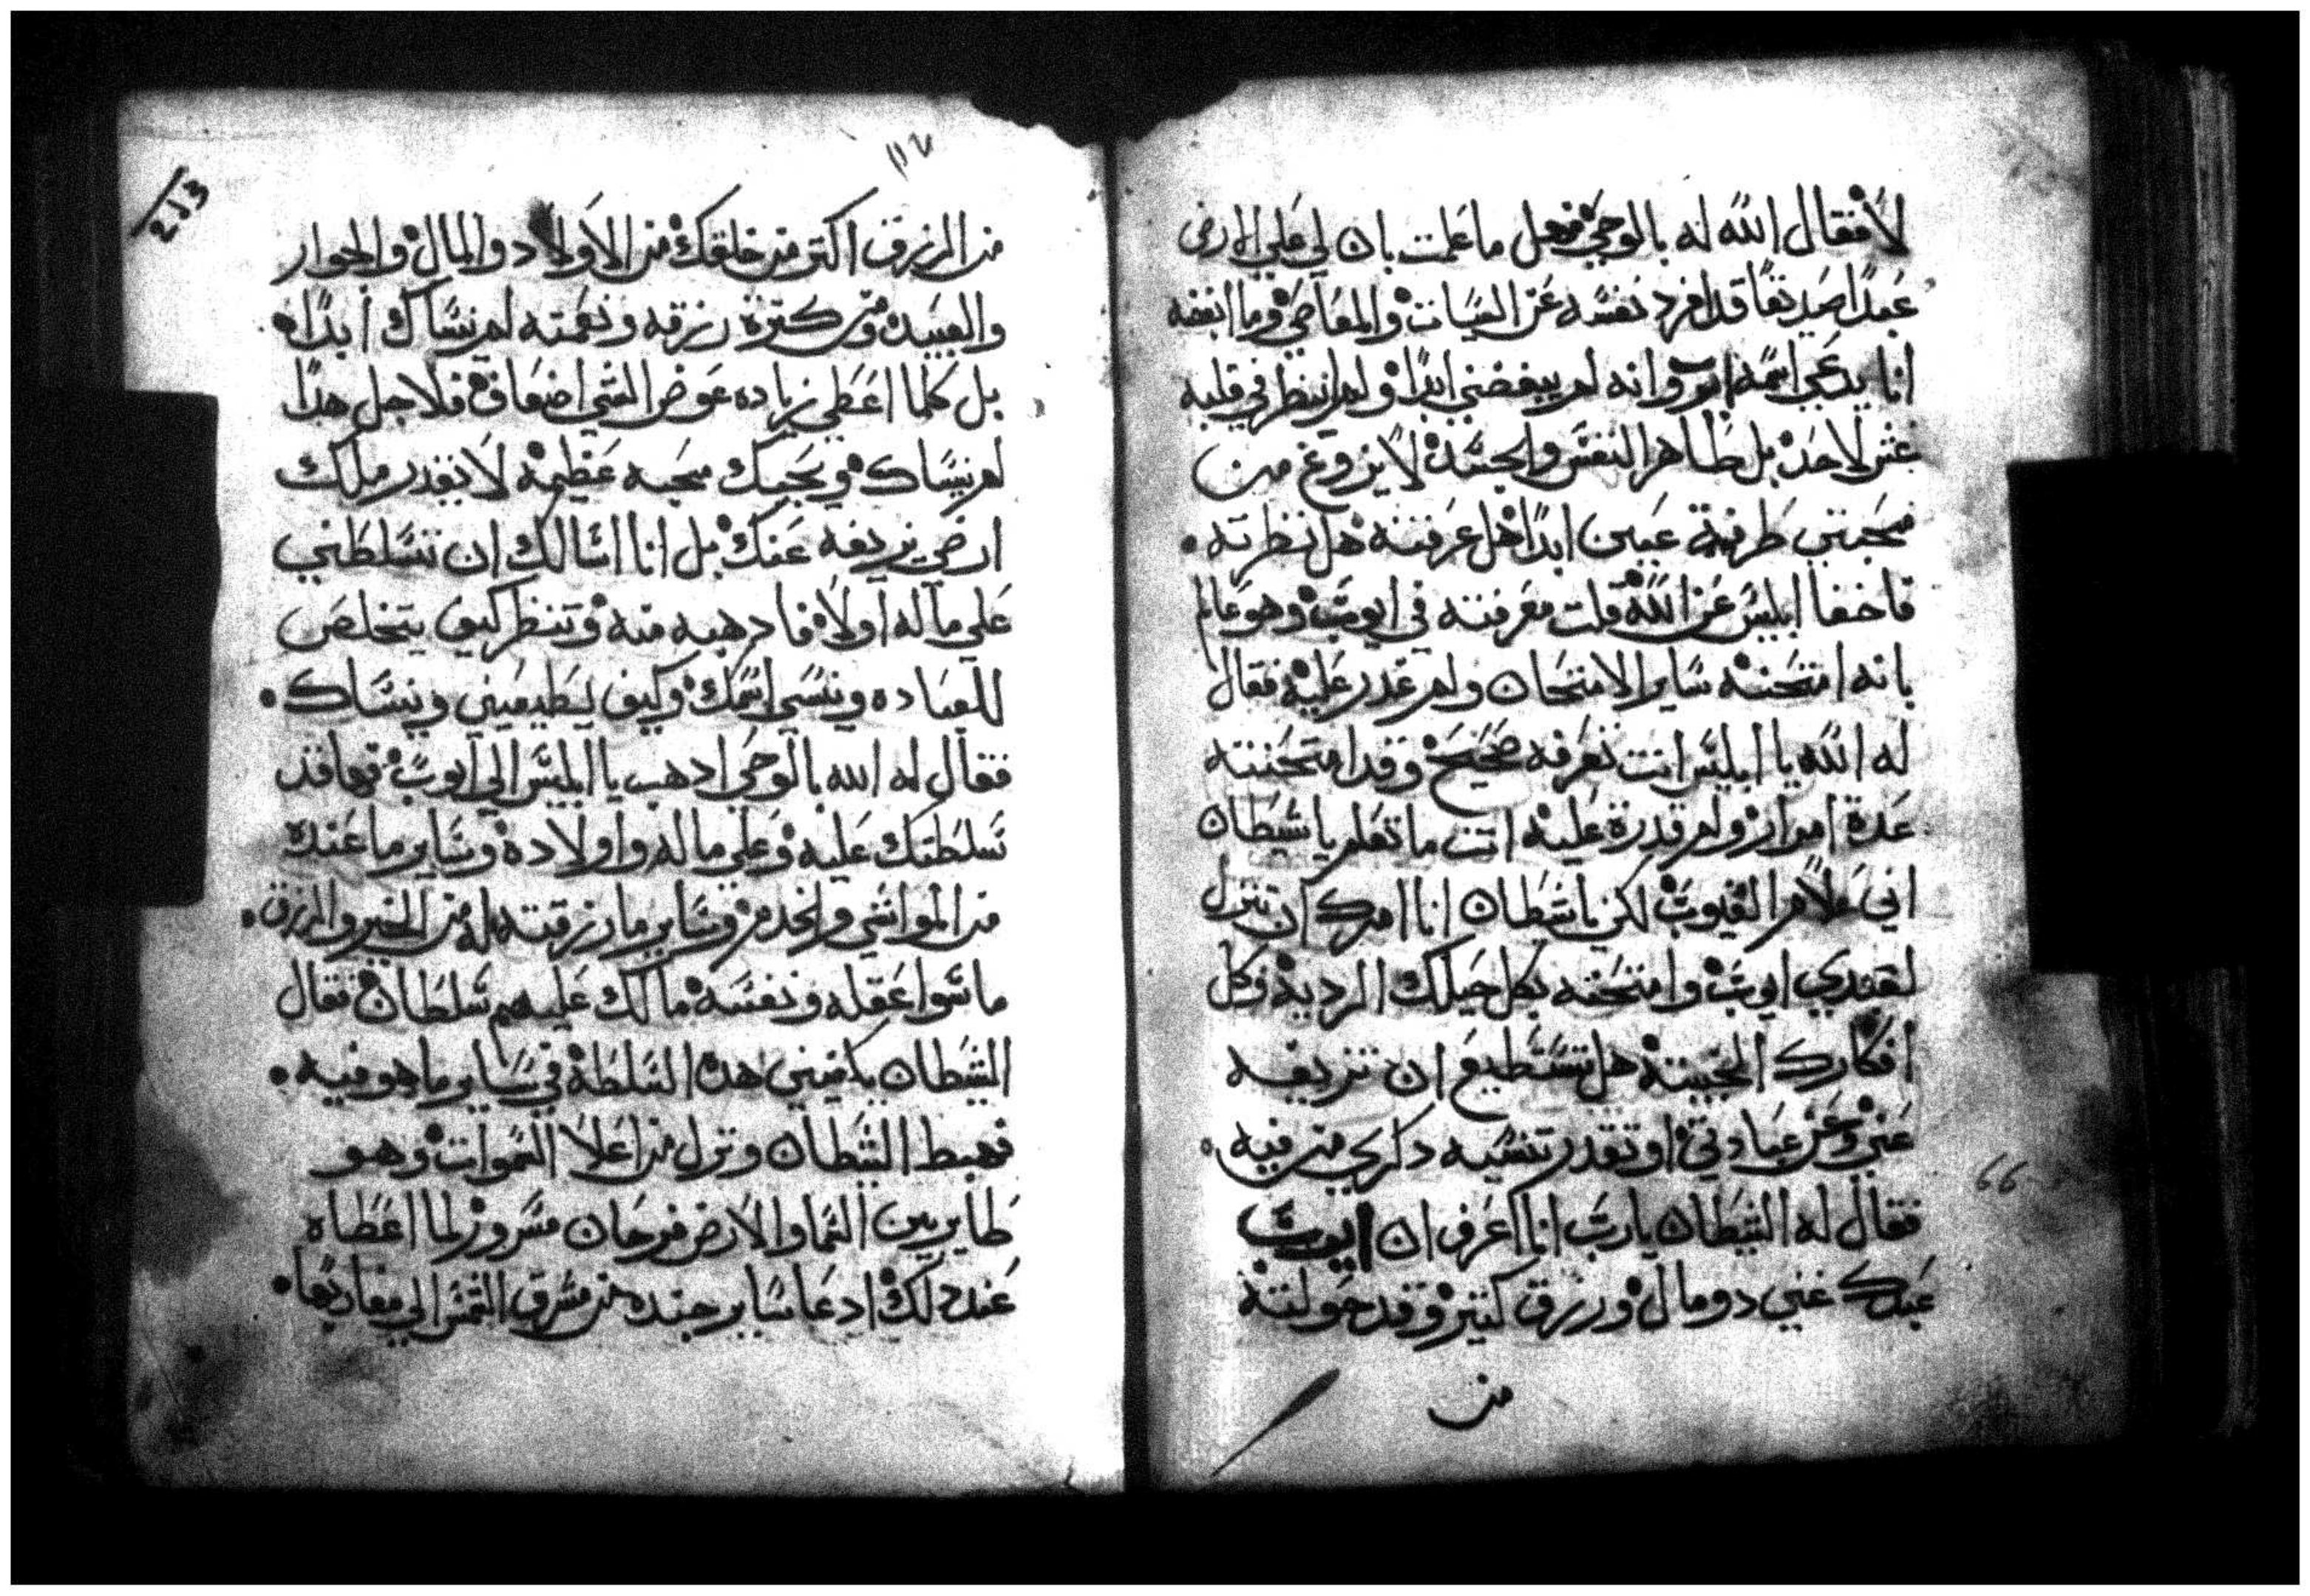 لا فقال الله له بالوحي فهل ما علمت بان لي علي الارض
عبدًا صديقًا قد افرد نفسه عن السيات والمعاصي وما ابغضه
انا يدعي اسمه ايوب وانه لم يبغضني ابدًا ولم انظر في قلبه
غش لاحد بل طاهر النفس والجسد لا يزوغ من
محبتي طرفة عين ابدًا هل عرفته هل نظرته
فاخفا ابليس عن الله قلت معرفته في ايوب وهو عالم
بانه امتحنه ساير الامتحان ولم قدر عليه فقال
له الله يا ابليس انت تعرفه صحيح وقد امتحنته
عدة امرار ولم قدرة عليه انت ما تعلم يا شيطان
اني علام الغيوب لكن يا شطان انا امرك ان تنزل
لعبدي ايوب وامتحنه بكل حيلك الرديه وكل
افكارك الخبيثه هل تستطيع ان تزيغه
عني وعن عبادتي او تقدر تنسيه دكري من فيه
فقال له الشيطان يا رب انا اعرف ان ايوب
عبدك غني دو مال ورزق كتير وقد خولته
من
112
213
من الرزق اكتر من خلقك من الاولاد والمال والجوار
والعبيد ومن كترة رزقه ونعمته لم ينساك ابدًا
بل كلما اعطي زياده عوض الشي اضعاف فلاجل هدا
لم ينساك ويحبك محبه عظيمه لا يقدر ملك
ارضي يزيغه عنك بل انا اسالك ان تسلطني
علي ماله اولا فادهبه منه وتنظر كيف يتخلص
للعباده وينسي اسمك وكيف يطيعني وينساك
فقال له الله بالوحي ادهب يا ابليس الي ايوب فها قد
سلطتك عليه وعلي ماله واولاده وساير ما عنده
من المواشي والخدم وساير ما رزقته له من الخير والرزق
ما سوا عقله ونفسه ما لك عليهم سلطان فقال
الشطان يكفيني هده السلطه في ساير ما هو فيه
فهبط الشيطان ونزل من اعلا السموات وهو
طاير بين السما والارض فرحان مسرور لما اعطاه
عند دلك ادعا ساير جنده من مشرق الشمس الي مغاربها
66